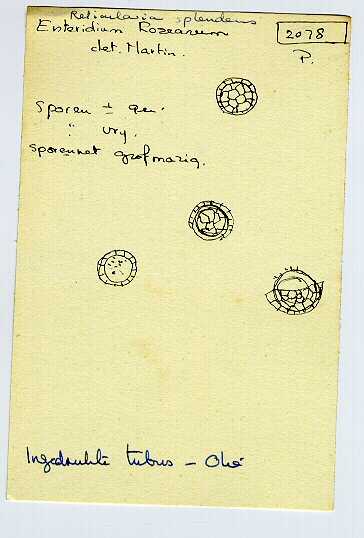 Reticularia splendens
Enteridium Rozeanum
2078
det. Martin.
P.
Sporen ±
" vry.
sporennet grofmazig.
Ingedrukte tubus - Oké